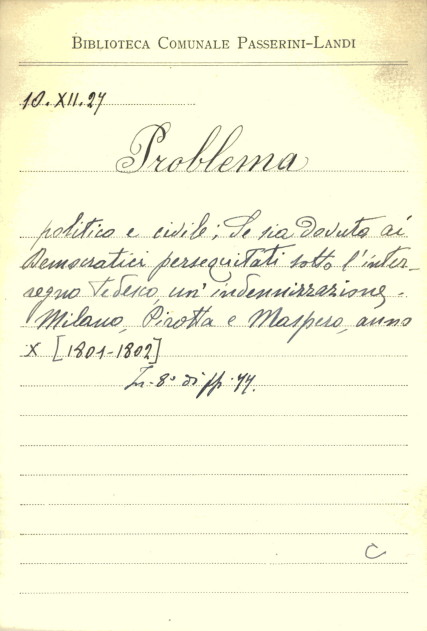 BIBLIOTECA COMUNALE PASSERINI-LANDI
10.XII.27
Problema
politico e civile; Se sia dovuta ai
Democratici perseguitati sotto l'inter-
regno tedesco un' indennizzazione.
Milano, Pirotta e Maspero, anno
X [1801-1802]
In-8° di pp. 44.
C